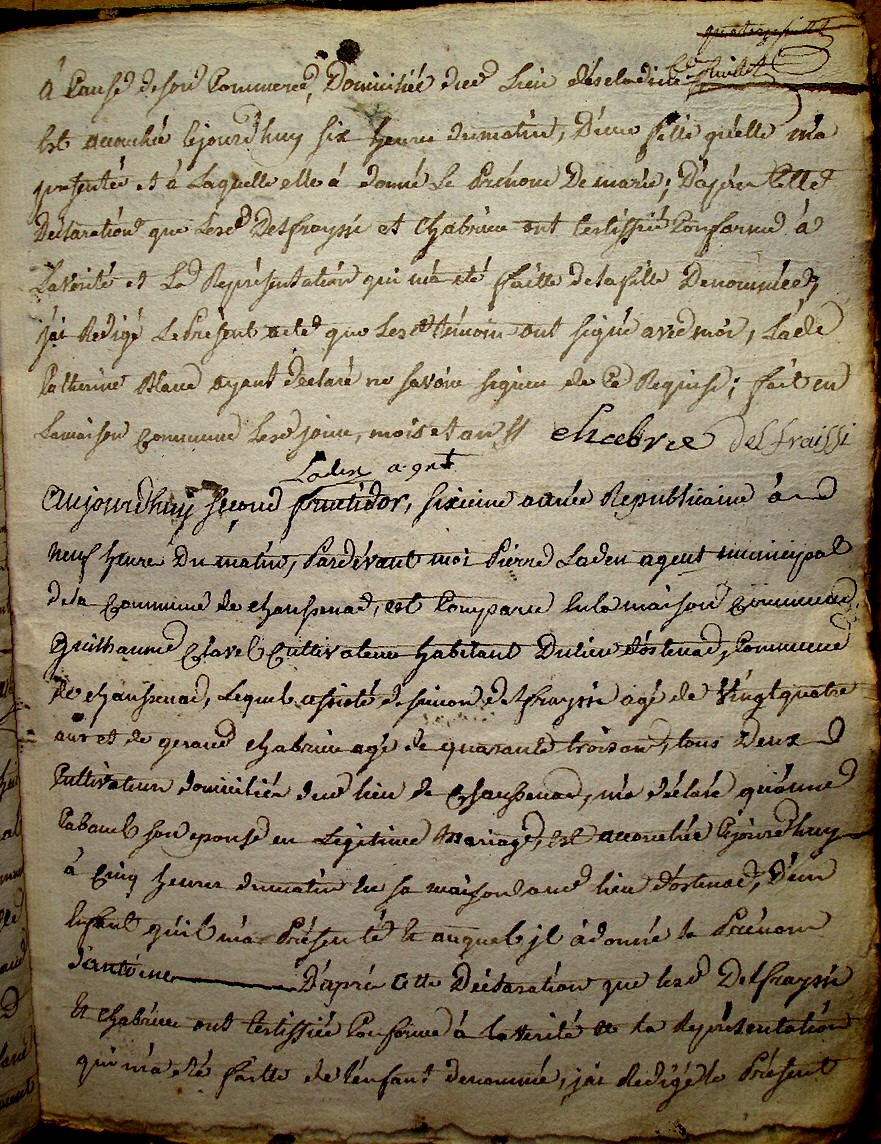 quatorze feuillet
feuillet
à Cause de son Commerce, Domiciliée dud lieu
Est accouchée ce jourd'huy six heures du matin, D'une fille qu'elle m'a
présentée et à Laquelle elle à donné Le Prénom De marie; D'après Cette
Déclaration que Lesd Delfrayssi et Chabrieu ont Certiffiée Conforme à
La vérité et La Représentation qui m'a été faitte de la fille Denommée,
j'ai Rédigé Le Présent acte que Lesd témoins ont signé avec moi, Lade
Catherine Blanc ayant déclaré ne savoir signer de Ce Requise; fait en
La maison Commune Lesd jour, mois et an // Chabrie delfraissi
Laden agnt
Aujourd'huy second fructidor, sixieme année Republicaine à
neuf heures Du matin, Pardévant moi Pierre Laden agent municipal
de la Commune de chaussenac, est Comparu En la maison Commune
Guilhaume Clavel Cultivateur habitant Du lieu d'ostenac, Commune
de chaussenac, Lequel assisté de simon delfrayssi agé de vingt quatre
ans et de geraud chabrieu agé de quarante trois ans, tous Deux
Cultivateurs domiciliés dud lieu de Chaussenac, m'a déclaré qu'anne
Cabanel son epouse en Légitime Mariage, est accouchée ce jourd'huy
à Cinq heures du matin En sa maison aud lieu d'ostenac, D'un
Enfant qu'il m'a Présenté Et auquel il à donné le Prénom
d'antoine D'après Cette Déclaration que lesd Delfrayssi
Et Chabrieu ont Certiffiée Conforme à la vérité Et la Représentation
qui m'a été faitte de l'enfant denommé, j'ai Rédigé le Présent